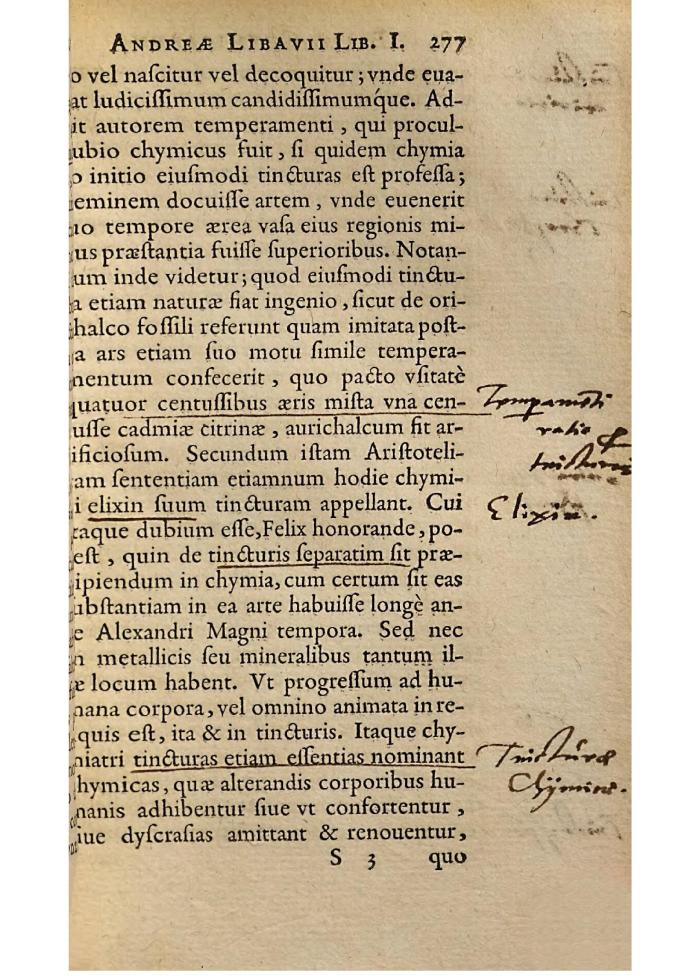 ANDREÆ LIBAVII LIB. I. 277
o vel naſcitur vel decoquitur; vnde eua-
at ludiciſſimum candidiſſimumq́ue. Ad-
it autorem temperamenti, qui procul-
ubio chymicus fuit, ſi quidem chymia
o initio eiuſmodi tincturas eſt profeſſa;
eminem docuiſſe artem, vnde euenerit
uo tempore ærea vaſa eius regionis mi-
us præſtantia fuiſſe ſuperioribus. Notan-
um inde videtur; quod eiuſmodi tinctu-
a etiam naturæ fiat ingenio, ſicut de ori-
halco foſſili referunt quam imitata poſt-
a ars etiam ſuo motu ſimile tempera-
nentum confecerit, quo pacto vſitatè
quatuor centuſſibus æris miſta vna cen-
uſſe cadmiæ citrinæ, aurichalcum fit ar-
ificioſum. Secundum iſtam Ariſtoteli-
am ſententiam etiamnum hodie chymi-
i elixin ſuum tincturam appellant. Cui
taque dubium eſſe, Felix honorande, po-
eſt, quin de tincturis ſeparatim ſit præ-
ipiendum in chymia, cum certum ſit eas
ubſtantiam in ea arte habuiſſe longè an-
e Alexandri Magni tempora. Sed nec
n metallicis ſeu mineralibus tantum il-
æ locum habent. Vt progreſſum ad hu-
nana corpora, vel omnino animata in re-
quis eſt, ita & in tincturis. Itaque chy-
niatri tincturas etiam eſſentias nominant
hymicas, quæ alterandis corporibus hu-
nanis adhibentur ſiue vt confortentur,
iue dyſcraſias amittant & renouentur,
S 3 quo
ratio
Elixin.
Tincturæ
Chymicæ.